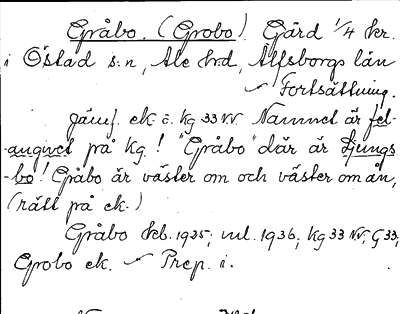 Gråbo. (Grobo) Gärd 1/4 kr.
i Östad s:n, Ale hrd, Älfsborgs län
Fortsättning.
Jämf. ek. o. kg 33 NV. Namnet är fel-
-angivet på kg! "Gråbo" där är Ljungs-
-bo! Gråbo är väster om och väster om ån,
(rätt på ek.)
Gråbo Jeb. 1935; ml. 1936; kg 33 NV, G 33;
Grobo ek. Prep. i.